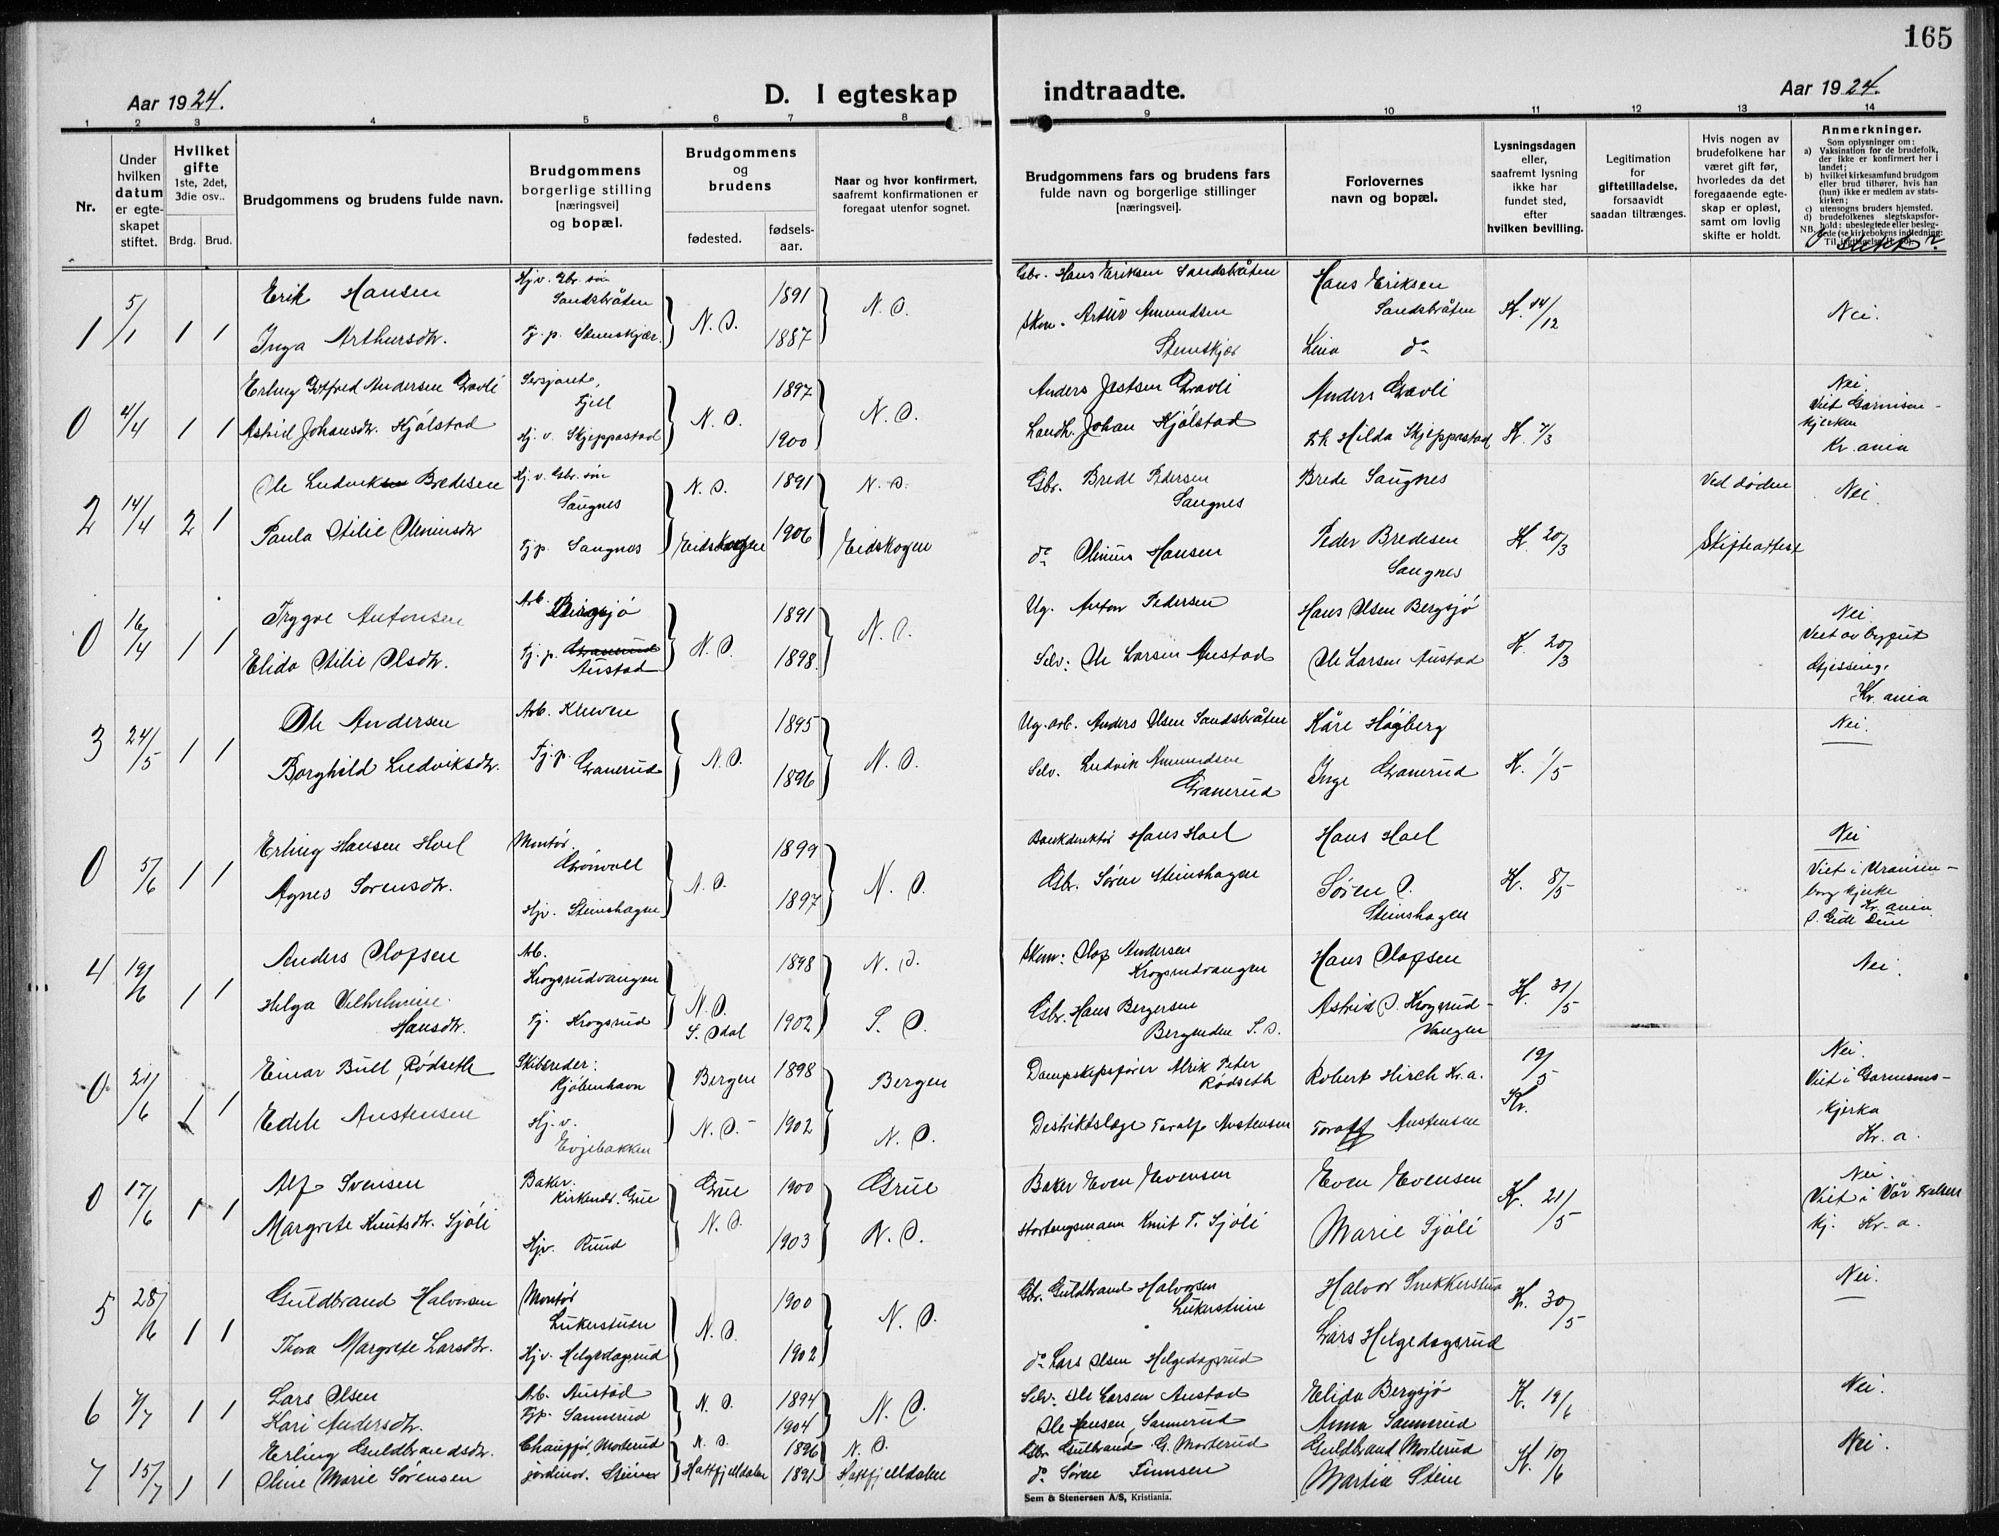 165
Aar 1924.
D. I egteskap indtraadte.
Aar 1924.
1 2 3 4 5 6 7 8 9 10 11 12 13 14
Nr.
Under hvilken datum er egteskapet stiftet.
Hvilket gifte 1ste, 2det, 3die osv..
Brdg. Brud.
Brudgommens og brudens fulde navn.
Brudgommens borgerlige stilling [næringsvei] og bopæl.
Brudgommens og brudens
fødested.
fødselsaar.
Naar og hvor konfirmert, saafremt konfirmationen er foregaat utenfor sognet.
Brudgommens fars og brudens fars fulde navn og borgerlige stillinger [næringsvei].
Forlovernes navn og bopæl.
Lysningsdagen eller, saafremt lysning ikke har fundet sted, efter hvilken bevilling.
Legitimation for giftetilladelse, forsaavidt saadan tiltrænges.
Hvis nogen av brudefolkene har været gift før, hvorledes da det foregaaende egteskap er opløst, samt om lovlig skifte er holdt.
Anmerkninger.
Som oplysninger om:
a) Vaksination før de brudefolk, der ikke er konfirmert her i landet;
b) hvilket kirkesamfund brudgom eller brud tilhører, hvis han (hun) ikke er medlem av statskirken;
c) utensogns bruders hjemsted.
d) brudefolkenes slegtskapsforhold: ubeslegtede eller beslegtede (se kirkebokens indledning:
1 5/1 1 1 Erik Hansen Hjv. Gbr. søn Sandsbråten N. O. 1891 N. O. Gbr. Hans Eriksen Sandsbråten Hans Eriksen Sandsbråten K. 14/12 Nei.
Inga Arthursdtr. Tj. p. Stenskjær. 1887 Skm. Artur Amundsen Stenskjær Lina do
0 4/4 1 1 Erling Gotfred Andersen Gravli Sersjant, Fjell N. O. 1897 N. O. Anders Jostsen Gravli Anders Gravli K. 7/3 Nei
Viet Garnisonkjerken
Kr.ania
Astrid Johansdtr. Kjølstad Hj. v. Skjeppastad 1900 Landh. Johan Kjølstad Hilda Skjeppastad
2 14/4 2 1 Ole Ludvik Bredesen Hj. v. Gbr. søn Saugnes N. O. 1891 N. O. Gbr. Brede Pedersen Saugnes Brede Saugnes Ved døden Nei.
Paula Otilie Oliniusdtr Tj p. Saugnes Eidskogen 1906 Eidskogen do Olinius Hansen Peder Bredesen Saugnes K. 20/3 Skifteattest
0 16/4 1 1 Trygve Antonsen Arb. Bergsjø N. O. 1891 N. O. Ug. Anton Pedersen Hans Olsen Bergsjø K. 20/3 Nei
Viet av byfut
Gjessing,
Kr.ania
Elida Otilie Olsdtr. Tj. p. Austad 1898. Selv: Ole Larsen Austad Ole Larsen Austad
3 24/5 1 1 Ole Andersen Arb. N. O. 1895 N. O. Ug. arb. Anders Olsen Sandsbråten Kåre Høgberg K. 1/5 Nei.
Borghild Ludviksdtr. Tj. p. Granerud 1896 Selv. Ludvik Amundsen Granerud Inge Granerud
0 5/6 1 1 Erling Hansen Hoel Montør, Grønvoll N. O. 1899 N. O. Bankdirektør Hans Hoel Hans Hoel K. 8/5 Nei
Viet i Uranienborg kjerke
Kr.ania
Agnes Sørensdtr. Hjv. Steinshagen 1897 Gbr. Søren Steinshagen Søren O. Steinshagen
4 19/6 1 1 Anders Olofsen Arb. Krogsrudvangen N. O. 1898 N. O. Skm: Olof Andersen Krogsrudvangen Hans Olofsen K. 31/5 Nei.
Helga Vilhelmine Hansdtr. Tj. Krogsrud S. Odal 1902 S. O. Gbr. Hans Bergersen Bergenden S. O. Astrid O. Krogsrudvangen
0 21/6 1 1 Einar Bull Rødseth Skibsreder: Kjøbenhavn Bergen 1898 Bergen Dampskipsfører Alrik Peter Rødseth Robert Hirch Kr.a. 19/5 Kr. Nei.
Viet i Garnisonskjerka
Kr.a.
Edele Austensen Hj. v. Evjebakken N. O. 1902 N. O. Distriktslæge Toralf Austensen Toralf Austensen
0 17/6 1 1 Alf Svensen Baker. Kirkenær. Grue Grue 1900 Grue Baker Even Evensen Even Evensen K. 21/5 Nei
Viet i Vår Frelsers
kj. Kr.a.
Margrete Knutsdtr. Sjøli Hjv. Ruud N. O. 1903 N. O. Stortingsmann Knut T. Sjøli Marie Sjøli
5 28/6 1 1 Guldbrand Halvorsen Montør N. O. 1900 N. O. Gbr. Guldbrand Halvorsen Halvor Snekkerstua K. 30/5 Nei.
Thora Margrete Larsdtr. Hjv. Helgedagsrud 1902 do Lars Olsen Helgedagsrud Lars Helgedagsrud
6 7/7 1 1 Lars Olsen Arb. Austad N. O. 1894 N. O. Selv: Ole Larsen Austad Elida Bergsjø K. 19/6 Nei.
Kari Andersdtr. Tjp. Sannerud 1904 Ole Hansen Sannerud Anna Sannerud
7 15/7 1 1 Erling Guldbrandsdtr. Chauffør Morterud N. O. 1896 N. O. Gbr. Gulbrand G. Morterud Guldbrand Morterud K. 10/6 Nei.
Oline Marie Sørensen Jordmor. Steinar Hatfjelldalen 1891 Hatfjelldalen do Søren Finnsen Martin Stein
Sem & Stenersen A/S, Kristiania.